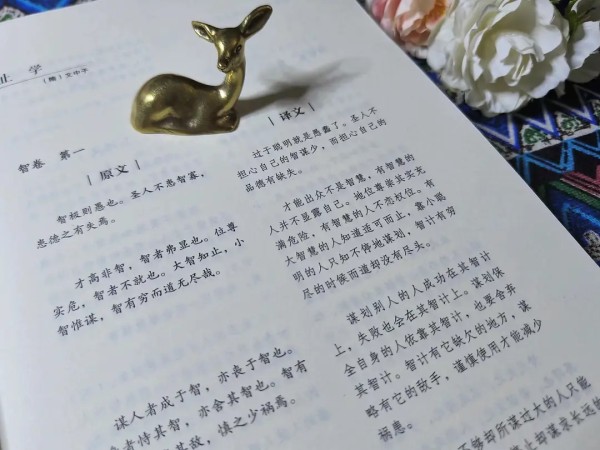 止 学
（隋）文中子
智卷 第一
| 原文 |
智极则愚也。圣人不患智寡，
患德之有失焉。
才高非智，智者弗显也。位尊
实危，智者不就也。大智知止，小
智惟谋，智有穷而道无尽哉。
谋人者成于智，亦丧于智也。
者恃其智，亦舍其智也。智有
其敌，慎之少祸焉。
| 译文 |
过于聪明就是愚蠢了。圣人不
担心自己的智谋少，而担心自己的
品德有缺失。
才能出众不是智慧，有智慧的
人并不显露自己。地位尊崇其实充
满危险，有智慧的人不恋权位。有
大智慧的人知道适可而止，靠小聪
明的人只知不停地谋划，智计有穷
尽的时候而道却没有尽头。
谋划别人的人成功在其智计
上，失败也会在其智计上。谋划保
全自身的人依靠其智计，也要舍弃
其智计。智计有它缺欠的地方，谋
略有它的敌手，谨慎使用才能减少
祸患。
不够却所谋过大的人只能
止却谋求长远的